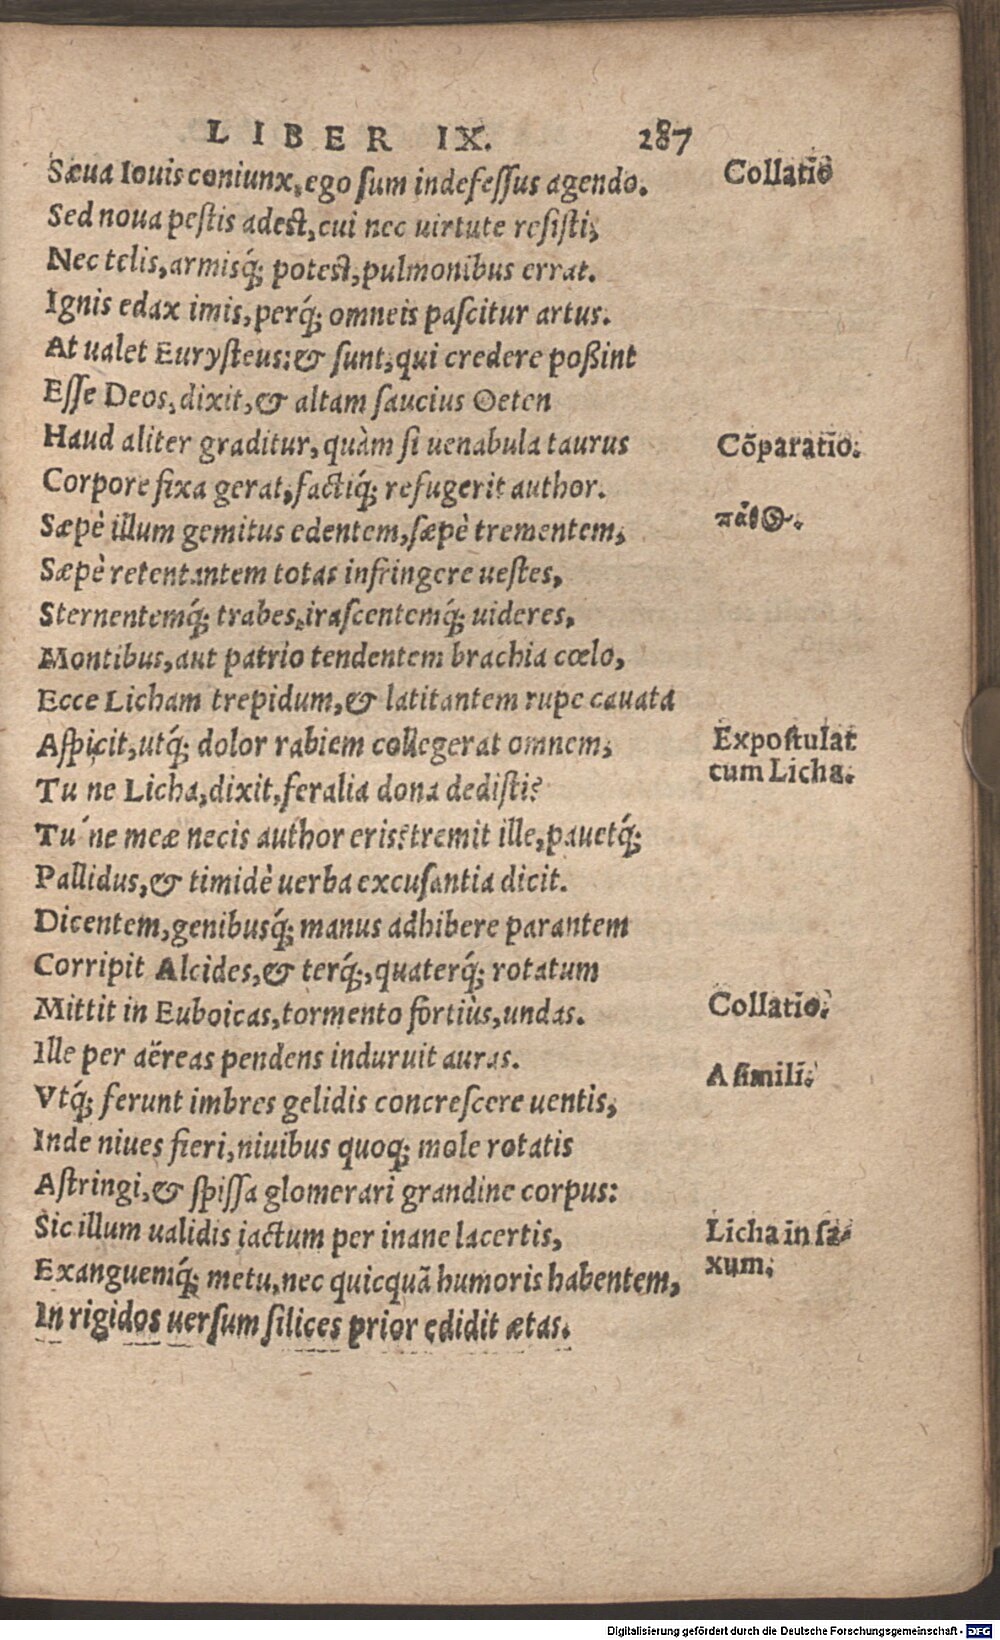 LIBER IX. 287
Sæua Iouis coniunx, ego sum indefessus agendo. Collatio
Sed noua pestis adest, cui nec uirtute resisti,
Nec telis, armisq́; potest, pulmonibus errat.
Ignis edax imis, perq́; omneis pascitur artus.
At ualet Eurysteus: & sunt, qui credere poßint
Esse Deos, dixit, & altam saucius Oeten
Haud aliter graditur, quàm si uenabula taurus Cõparatio.
Corpore fixa gerat, factiq́; refugerit author.
Sæpè illum gemitus edentem, sæpè trementem, πάθος.
Sæpè retentantem totas infringere uestes,
Sternentemq́; trabes, irascentemq́; uideres,
Montibus, aut patrio tendentem brachia cœlo,
Ecce Licham trepidum, & latitantem rupe cauata
Aspicit, utq́; dolor rabiem collegerat omnem, Expostulat
Tu ne Licha, dixit, feralia dona dedisti? cum Licha.
Tu ne meæ necis author eris? tremit ille, pauetq́;
Pallidus, & timidè uerba excusantia dicit.
Dicentem, genibusq́; manus adhibere parantem
Corripit Alcides, & terq́;, quaterq́; rotatum
Mittit in Euboicas, tormento fortiùs, undas. Collatio.
Ille per aëreas pendens induruit auras.
Vtq́; ferunt imbres gelidis concrescere uentis, A simili.
Inde niues fieri, niuibus quoq; mole rotatis
Astringi, & spissa glomerari grandine corpus:
Sic illum ualidis iactum per inane lacertis, Licha in sa-
Exanguemq́; metu, nec quicquã humoris habentem, xum.
In rigidos uersum silices prior edidit ætas.
Digitalisierung gefördert durch die Deutsche Forschungsgemeinschaft - DFG